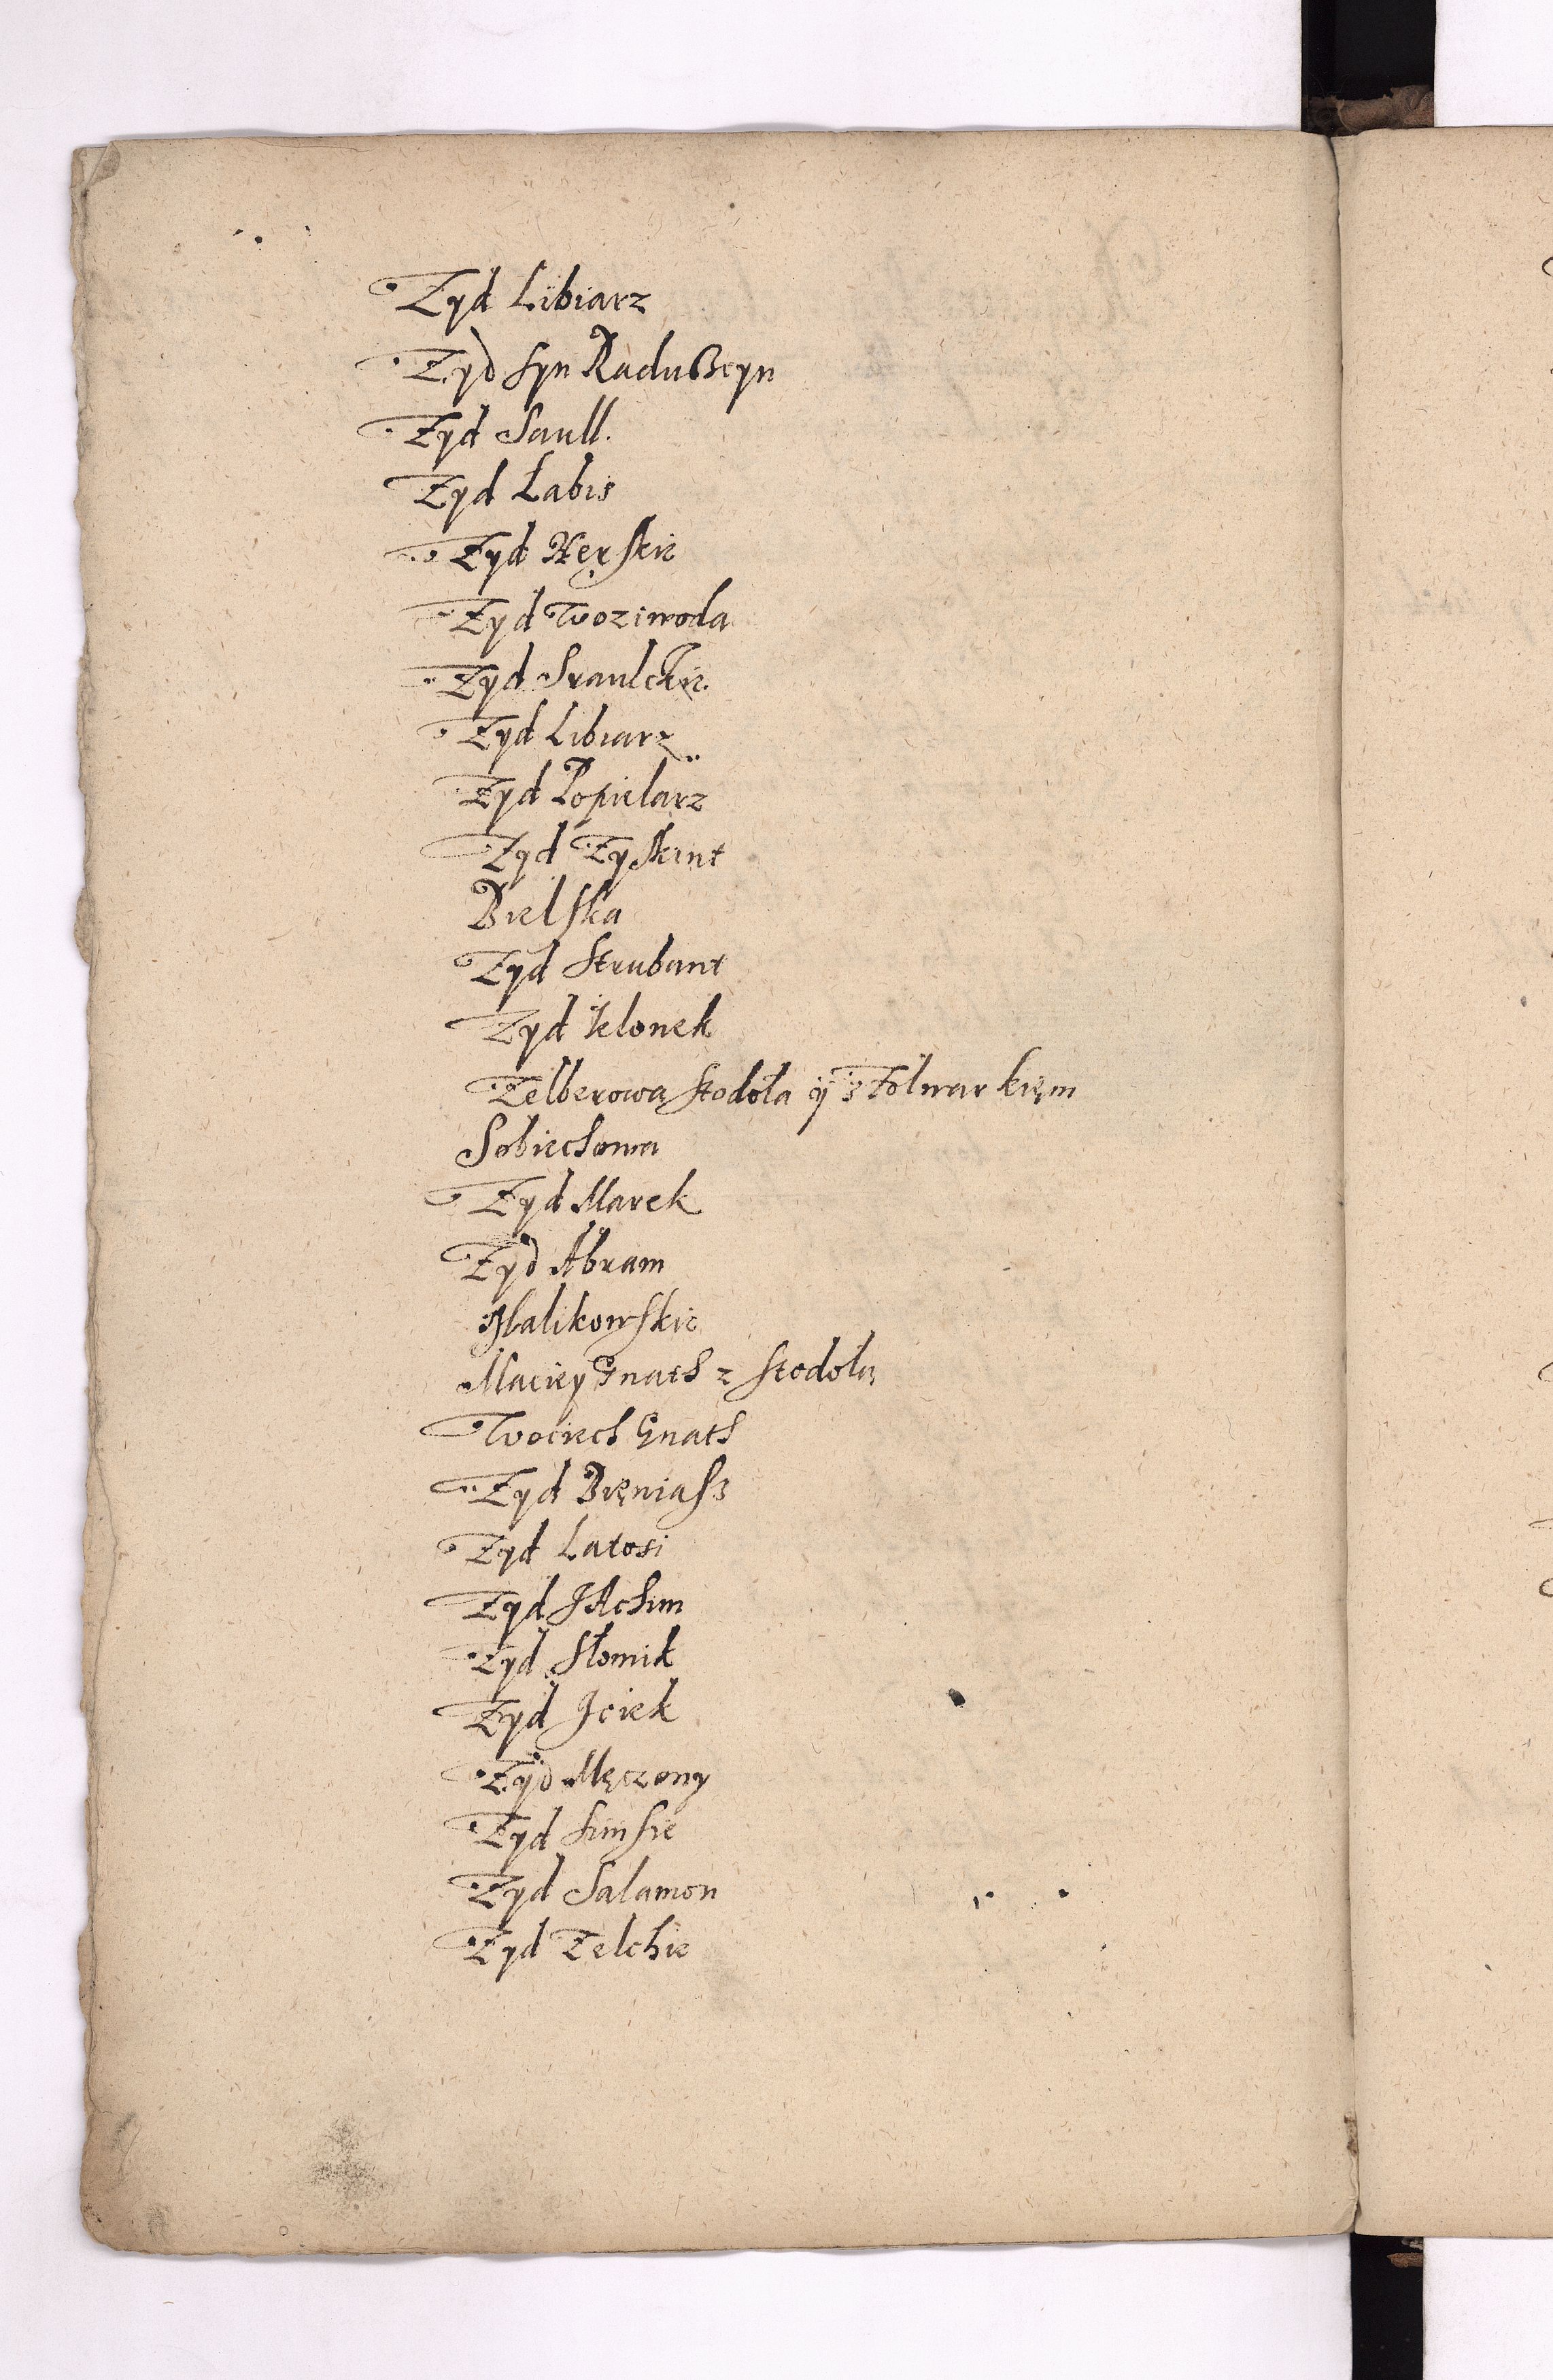 Zyd Libiarz
Zyd Syn Radußeyn
Zyd Saull.
Zyd Łabis
Zyd Herskie
Zyd Woziwoda
Zyd Sraulckie
Zyd Libiarz
Zyd Popielarz
Zyd Zyskint
Bielska
Zyd Strubant
Zyd Ielonek
Zelberowa Stodoła ÿ z Folwarkięm
Sobiechowa
Zyd Marek
Zyd Abram
Halikowskie
Maciey Gnath z Stodołą
Wociech Gnath
Zyd Bięniasz
Zyd Latosi
Zyd JAchim
Zyd Słomik
Zyd Iciek
Zyd Męczony
Zyd Simsie
Zyd Salamon
Zyd Zelchie